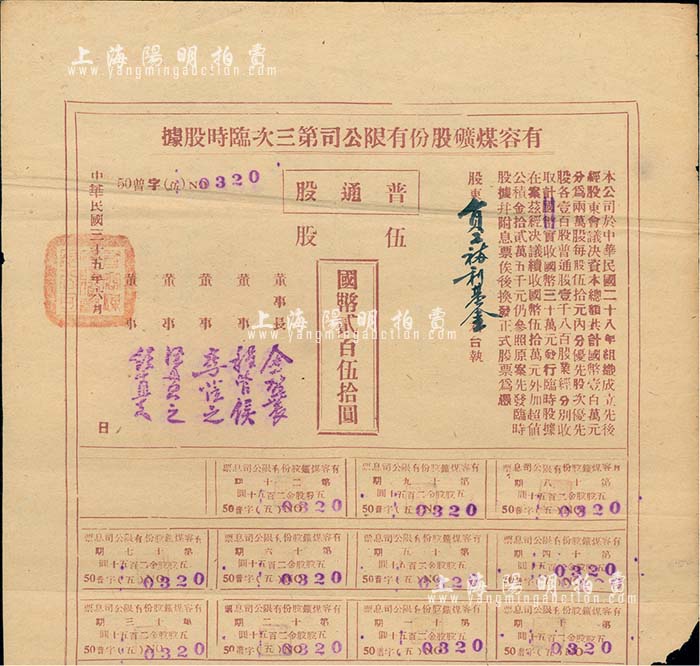 上海陽明拍賣
www.yangmingauction.com
有容煤礦股份有限公司第三次臨時股據
本公司於中華民國二十八年組織成立先後
經股東會議決資本總額共計國幣壹百萬元
分為兩萬股每股伍拾元內分優先股次優先
股各壹百股普通股壹千八百股業經分別收
取計國幣實收國幣三十萬元發行臨時股據
在案茲經決議續收國幣伍拾萬元外加超值
公積金拾貳萬五千元仍參照原案先發臨時
股據幷附息票俟後換發正式股票為憑
股東 員工福利基金 台執
普通股
伍股
國幣貳百伍拾圓
50普字(五)NO 0320
董事長
董事
董事
董事
董事
中華民國三十五年六月 日
上海陽明拍賣
www.yangmingauction.com
有容煤礦股份有限公司息票
第十八期
五股股金二百五十圓
50普字(五)NO 0320
有容煤礦股份有限公司息票
第十九期
五股股金二百五十圓
50普字(五)NO 0320
有容煤礦股份有限公司息票
第二十期
五股股金二百五十圓
50普字(五)NO 0320
有容煤礦股份有限公司息票
第十四期
五股股金二百五十圓
50普字(五)NO 0320
有容煤礦股份有限公司息票
第十五期
五股股金二百五十圓
50普字(五)NO 0320
有容煤礦股份有限公司息票
第十六期
五股股金二百五十圓
50普字(五)NO 0320
有容煤礦股份有限公司息票
第十七期
五股股金二百五十圓
50普字(五)NO 0320
上海陽明拍賣
www.yangmingauction.com
有容煤礦股份有限公司息票
第十期
五股股金二百五十圓
50普字(五)NO 0320
有容煤礦股份有限公司息票
第十一期
五股股金二百五十圓
50普字(五)NO 0320
有容煤礦股份有限公司息票
第十二期
五股股金二百五十圓
50普字(五)NO 0320
有容煤礦股份有限公司息票
第十三期
五股股金二百五十圓
50普字(五)NO 0320